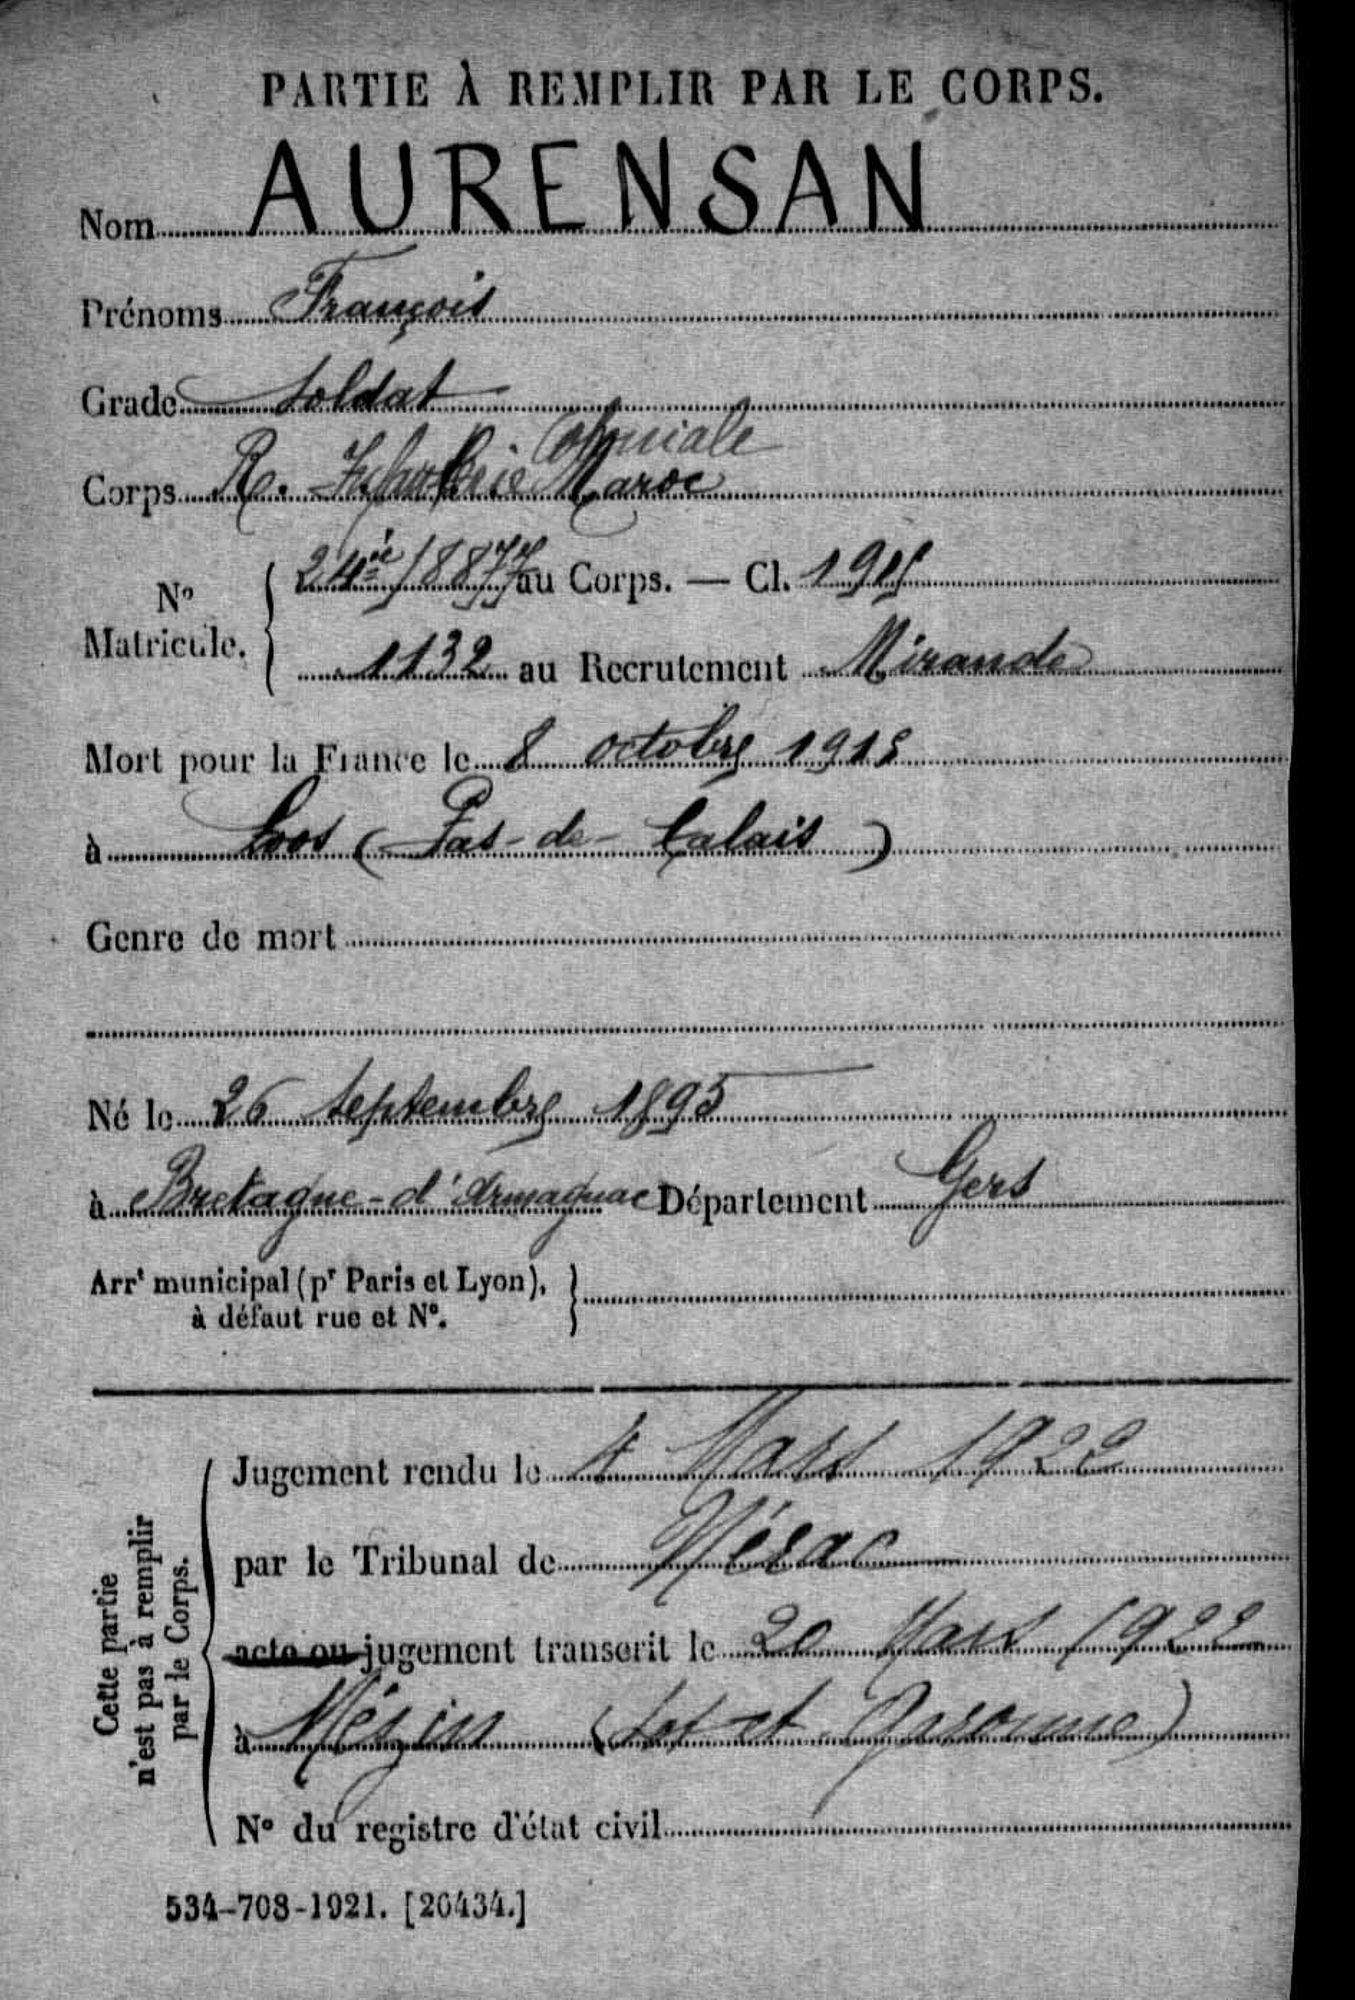 PARTIE À REMPLIR PAR LE CORPS.
Nom AURENSAN
Prénoms François
Grade Soldat
Coloniale
Corps R. Infanterie Maroc
N° Matricule. { 24 ie /18877 au Corps. — Cl. 1915
1132 au Recrutement Mirande
Mort pour la France le 8 octobre 1915
à Loos (Pas-de-Calais)
Genre de mort
Né le 26 septembre 1895
à Bretagne-d'Armagnac Département Gers
Arrt municipal (pr Paris et Lyon), }
à défaut rue et N°.
Cette partie
n'est pas à remplir
par le Corps.
Jugement rendu le 4 Mars 1922
par le Tribunal de Nérac
acte ou jugement transcrit le 20 Mars 1922
à Mézin (Lot et Garonne)
N° du registre d'état civil
534-708-1921. [26434.]